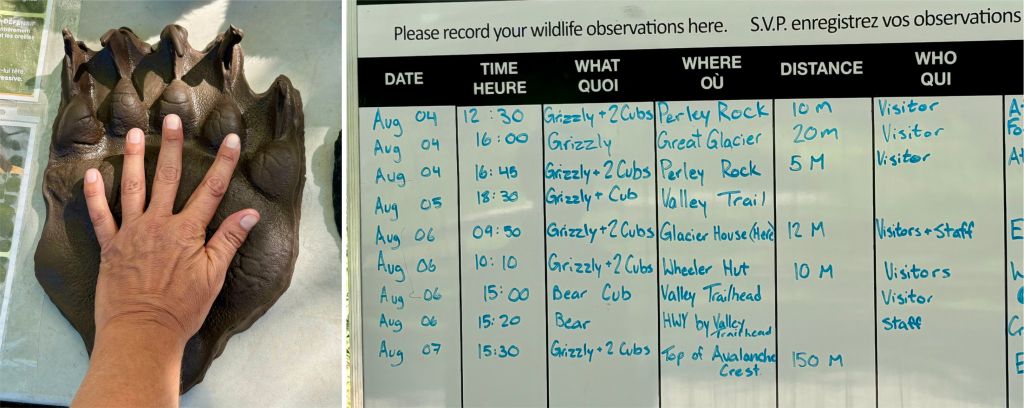 Please record your wildlife observations here. S.V.P. enregistrez vos observations
DATE TIME HEURE WHAT QUOI WHERE OÙ DISTANCE WHO QUI
Aug 04 12:30 Grizzly + 2 Cubs Perley Rock 10 M Visitor
Aug 04 16:00 Grizzly Great Glacier 20m Visitor
Aug 04 16:45 Grizzly + 2 Cubs Perley Rock 5 M Visitor
Aug 05 18:30 Grizzly + Cub Valley Trail
Aug 06 09:50 Grizzly + 2 Cubs Glacier House (Here) 12 M Visitors + Staff
Aug 06 10:10 Grizzly + 2 Cubs Wheeler Hut 10 M Visitors
Aug 06 15:00 Bear Cub Valley Trailhead Visitor
Aug 06 15:20 Bear HWY by Valley Trailhead Staff
Aug 07 15:30 Grizzly + 2 Cubs Top of Avalanche Crest 150 M